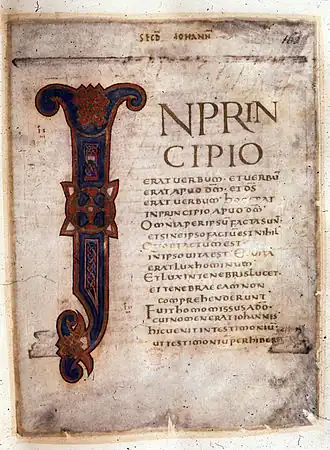 SECD IOHANN
IN PRIN
CIPIO
ERAT UERBUM · ET UERBŪ
ERAT APUD DM̄ · ET DS̄
ERAT UERBUM · HOC ERAT
IN PRINCIPIO APUD DM̄
OMNIA PER IPSUM FACTA SUNT
ET SINE IPSO FACTUM EST NIHIL
QUOD FACTUM EST
IN IPSO UITA EST · ET UITA
ERAT LUX HOMINUM
ET LUX IN TENEBRIS LUCET
ET TENEBRAE EAM NON
COMPREHENDERUNT
FUIT HOMO MISSUS A DO
CUI NOMEN ERAT IOHANNIS
HIC UENIT IN TESTIMONIŪ
UT TESTIMONIU PERHIBER